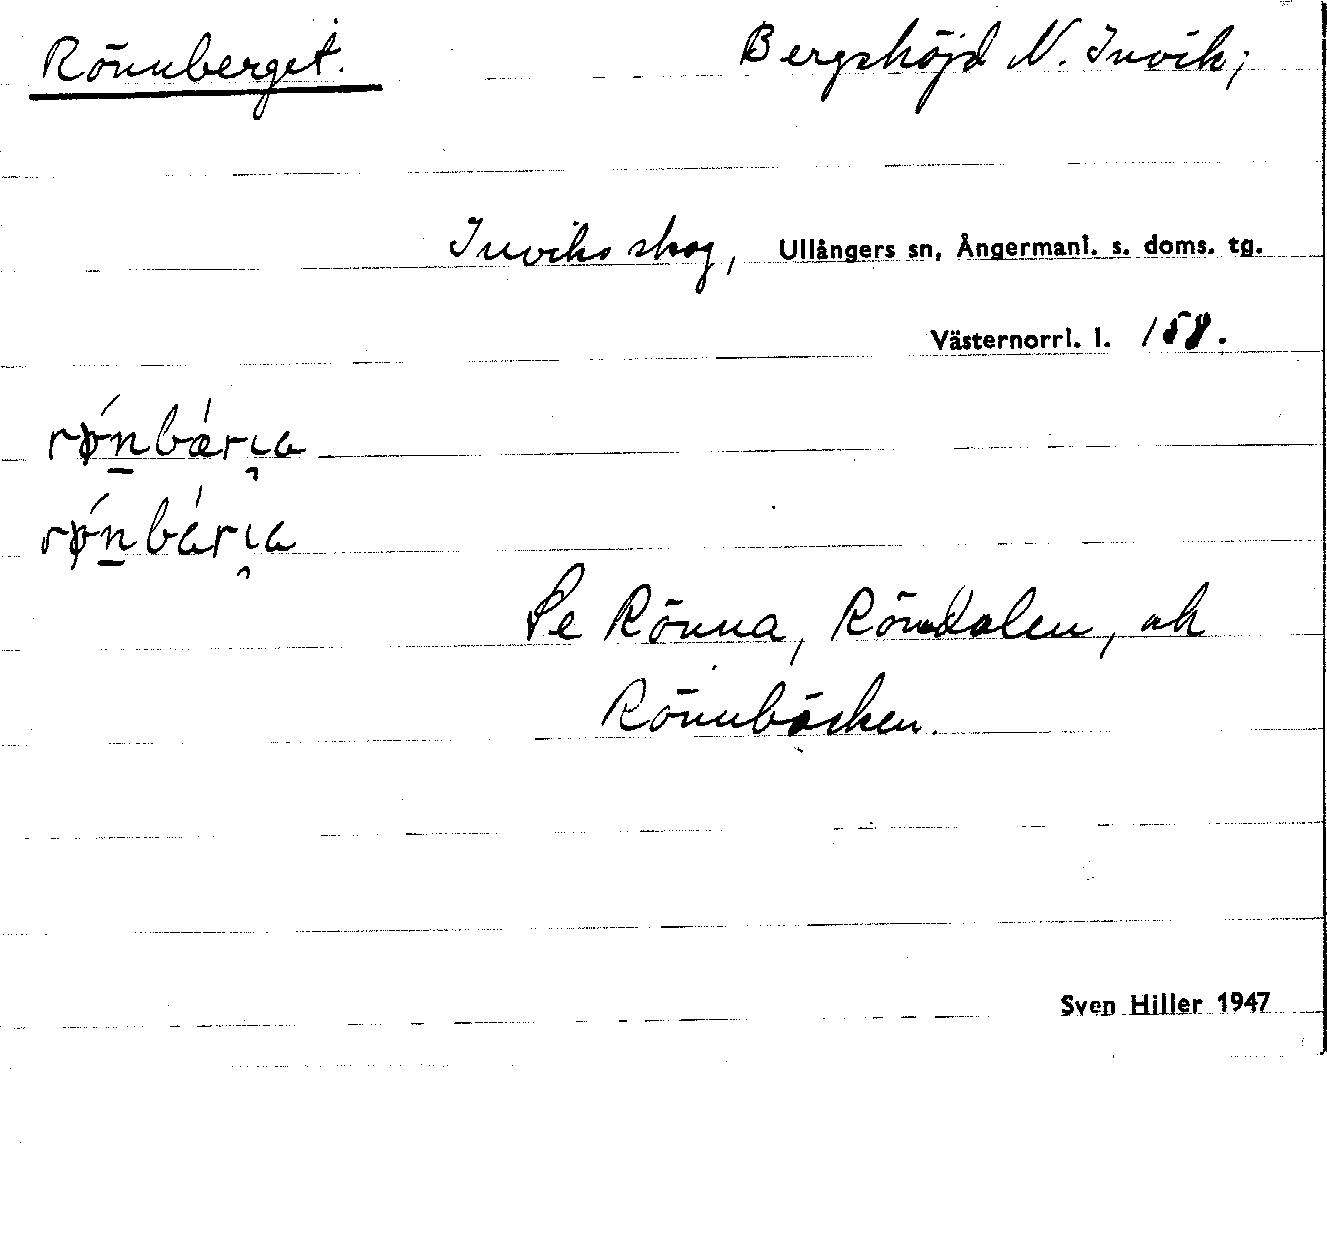 Rönnberget. Bergshöjd N. Invik;
Inviks skog, Ullångers sn, Ångermanl. s. doms. tg.
Västernorrl. l. 158.
Se Rönna, Röndalen, ok
Rönnbäcken.
Sven Hiller 1947